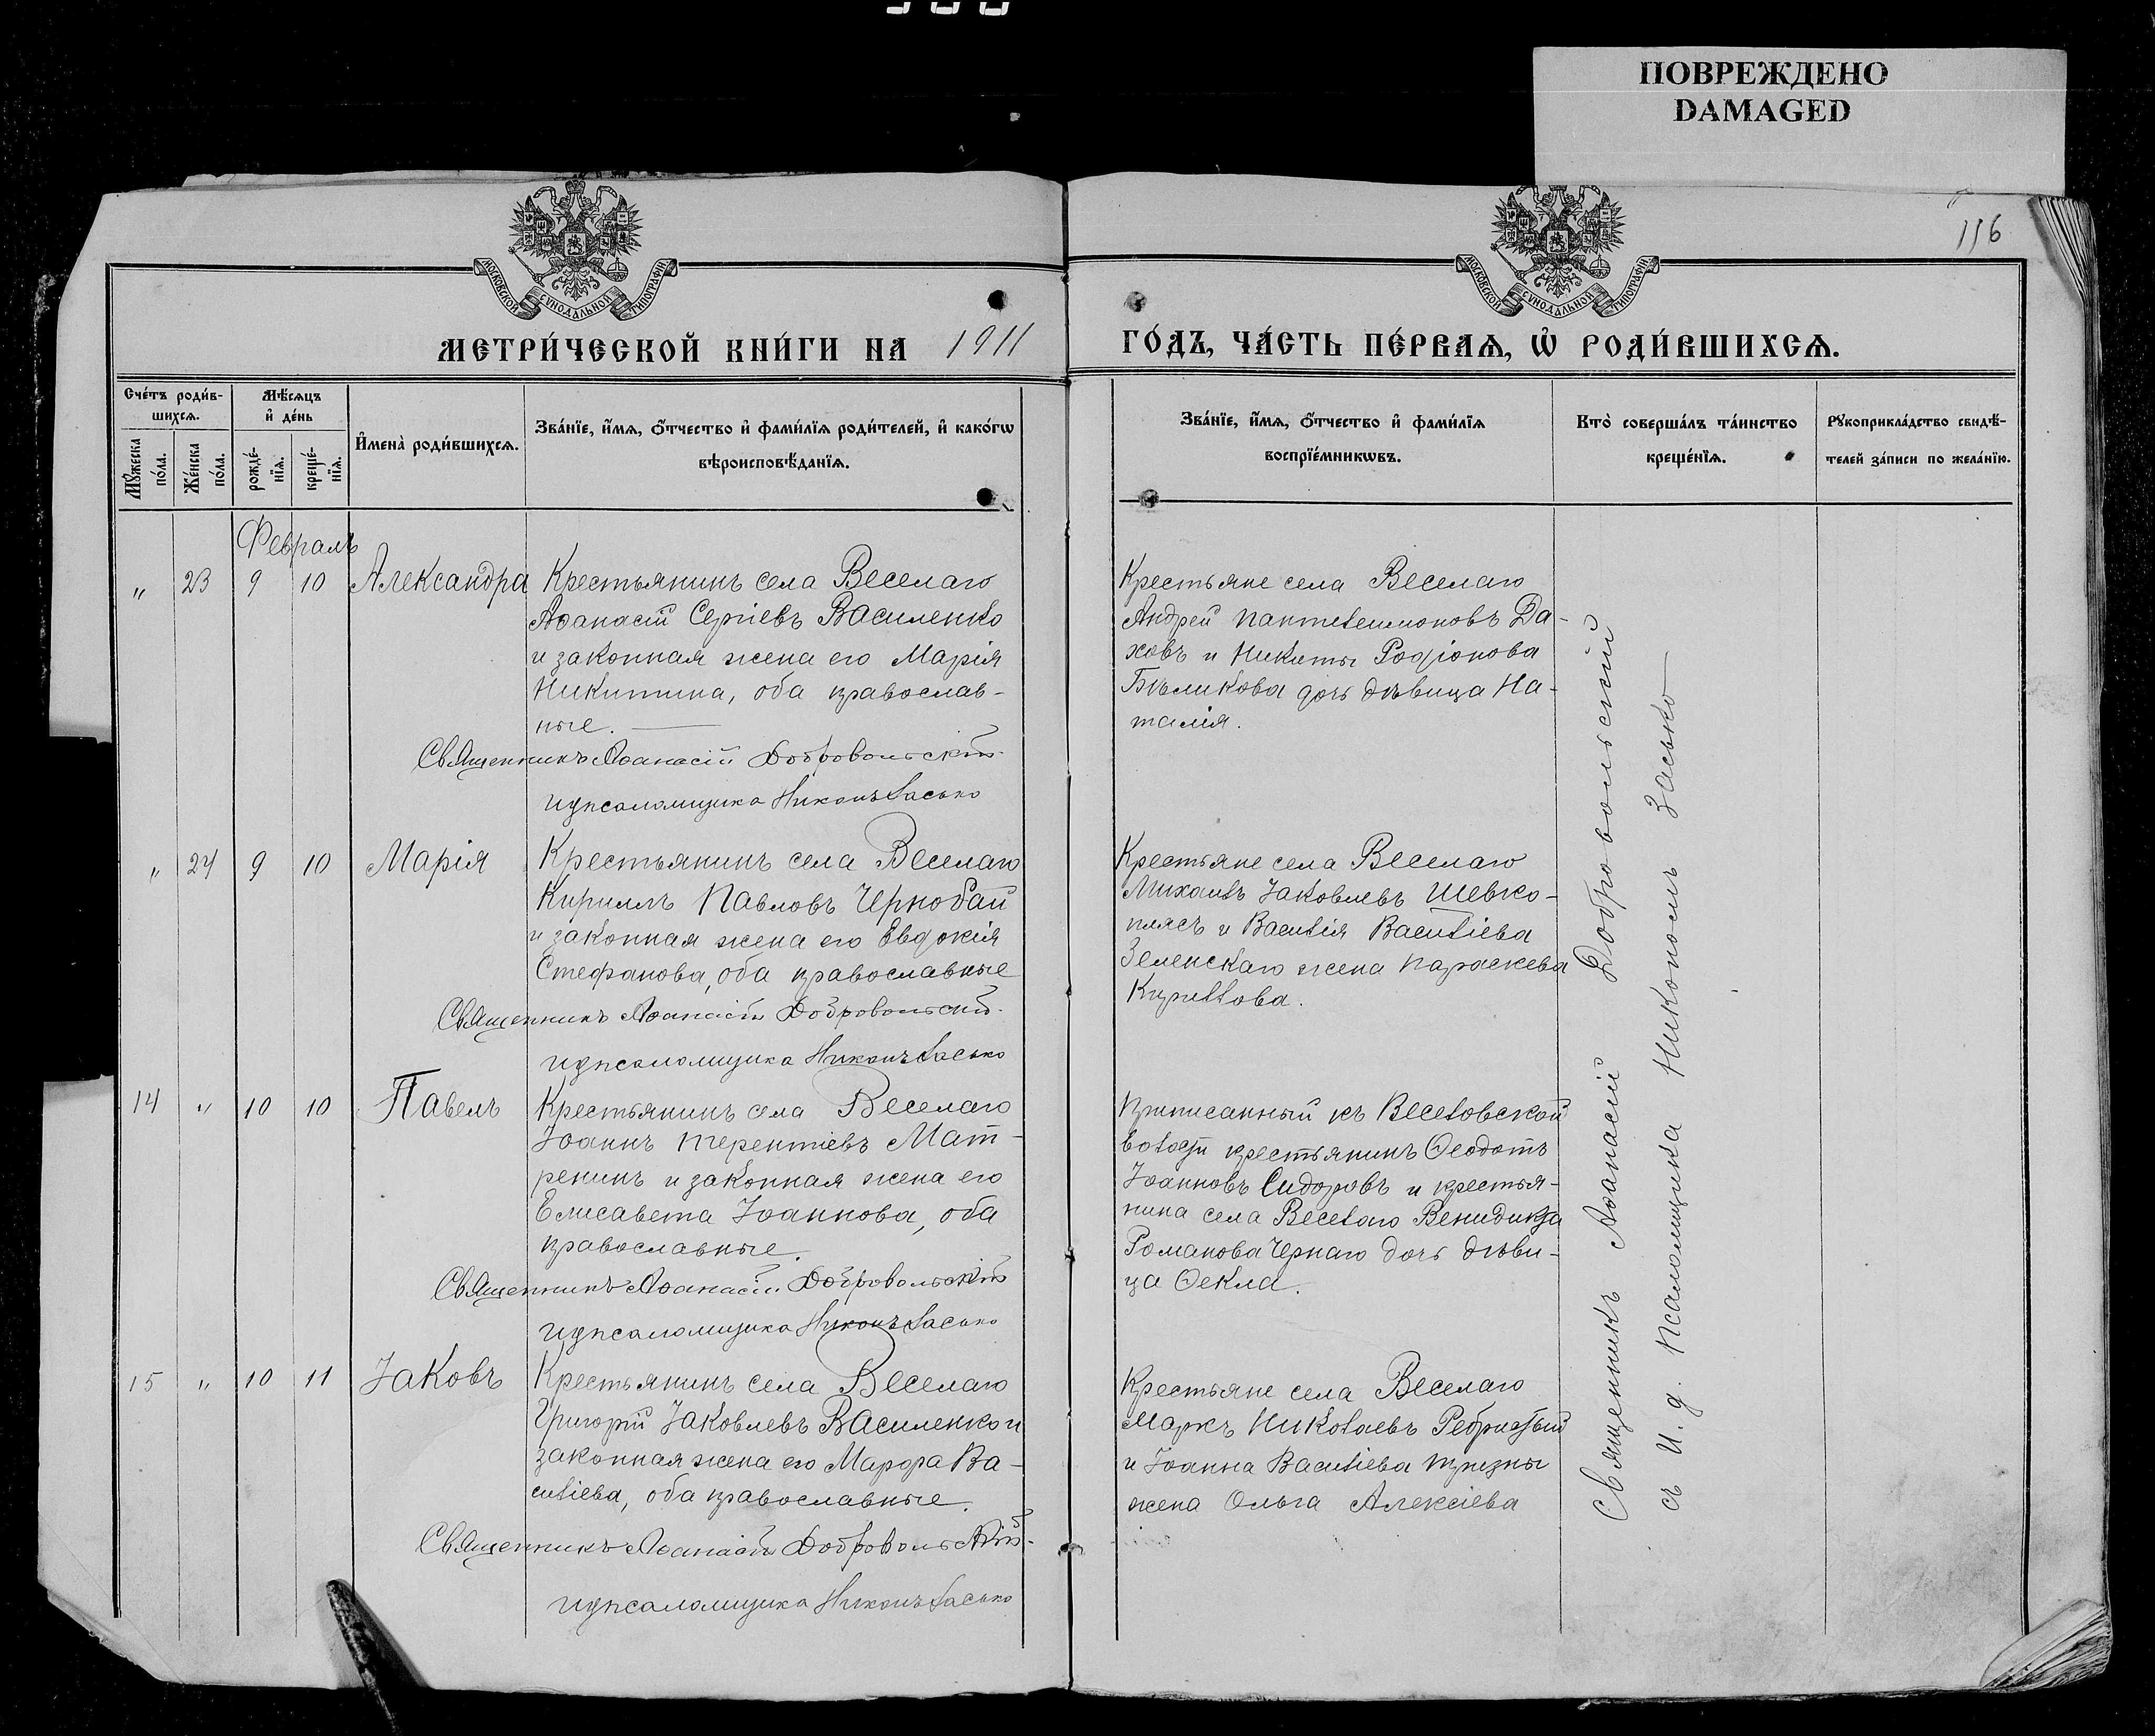 ПОВРЕЖДЕНО
DAMAGED
116
МОСКОВСКОЙ СѴНОДАЛЬНОЙ ТИПОГРАФІИ
МОСКОВСКОЙ СѴНОДАЛЬНОЙ ТИПОГРАФІИ
МЕТРИ́ЧЕСКОЙ КНИ́ГИ НА 1911
ГО́ДЪ, ЧА́СТЬ ПЕ́РВАѦ, Ѡ҆ РОДИ́ВШИХСѦ.
Сче́тъ роди́в-
шихсѧ.
Мѣ́сѧцъ
и҆ де́нь
Мꙋ́жеска
по́ла.
Же́нска
по́ла.
рожде́-
нїѧ.
креще́-
нїѧ.
И҆мена̀ роди́вшихсѧ.
Зва́нїе, и҆́мѧ, ѻ҆́тчество и҆ фами́лїѧ роди́телей, и҆ како́гѡ
вѣроисповѣ́данїѧ.
Зва́нїе, и҆́мѧ, ѻ҆́тчество и҆ фами́лїѧ
воспрїе́мникѡвъ.
Кто̀ соверша́лъ та́инство
креще́нїѧ.
Рꙋкоприкла́дство свидѣ́-
телей за́писи по жела́нїю.
Февраль
" 23 9 10 Александра Крестьянинъ села Веселаго
Аѳанасій Сергіевъ Василенко
и законная жена его Марія
Никитина, оба православ-
ные.
Священникъ Аѳанасій Добровольскій
и д псаломщика Никонъ Засько
Крестьяне села Веселаго
Андрей Пантелеимоновъ Да-
ховъ и Никиты Родіонова
Бѣликова дочь дѣвица На-
талія.
" 24 9 10 Марія Крестьянинъ села Веселаго
Кириллъ Павловъ Чернобай
и законная жена его Евдокія
Стефанова, оба православные
Священникъ Аѳанасій Добровольскій
и д псаломщика Никонъ Засько
Крестьяне села Веселаго
Михаилъ Іаковлевъ Шевко-
плясъ и Василія Василіева
Зеленскаго жена Параскева
Кириллова.
14 " 10 10 Павелъ Крестьянинъ села Веселаго
Іоаннъ Терентіевъ Мат-
ренинъ и законная жена его
Елисавета Іоаннова, оба
православные.
Священникъ Аѳанасій Добровольскій
и д псаломщика Никонъ Засько
Приписанный къ Веселовской
волости крестьянинъ Ѳеодотъ
Іоанновъ Сидоровъ и крестья-
нина села Веселаго Венидикта
Романова Чернаго дочь дѣви-
ца Ѳекла.
15 " 10 11 Іаковъ Крестьянинъ села Веселаго
Григорій Іаковлевъ Василенко и
законная жена его Марфа Ва-
силіева, оба православные.
Священникъ Аѳанасій Добровольскій
и д псаломщика Никонъ Засько
Крестьяне села Веселаго
Маркъ Николаевъ Ребристый
и Іоанна Василіева Тризны
жена Ольга Алексіева
Священникъ Аѳанасій Добровольскій
съ И. д. Псаломщика Никономъ Засько